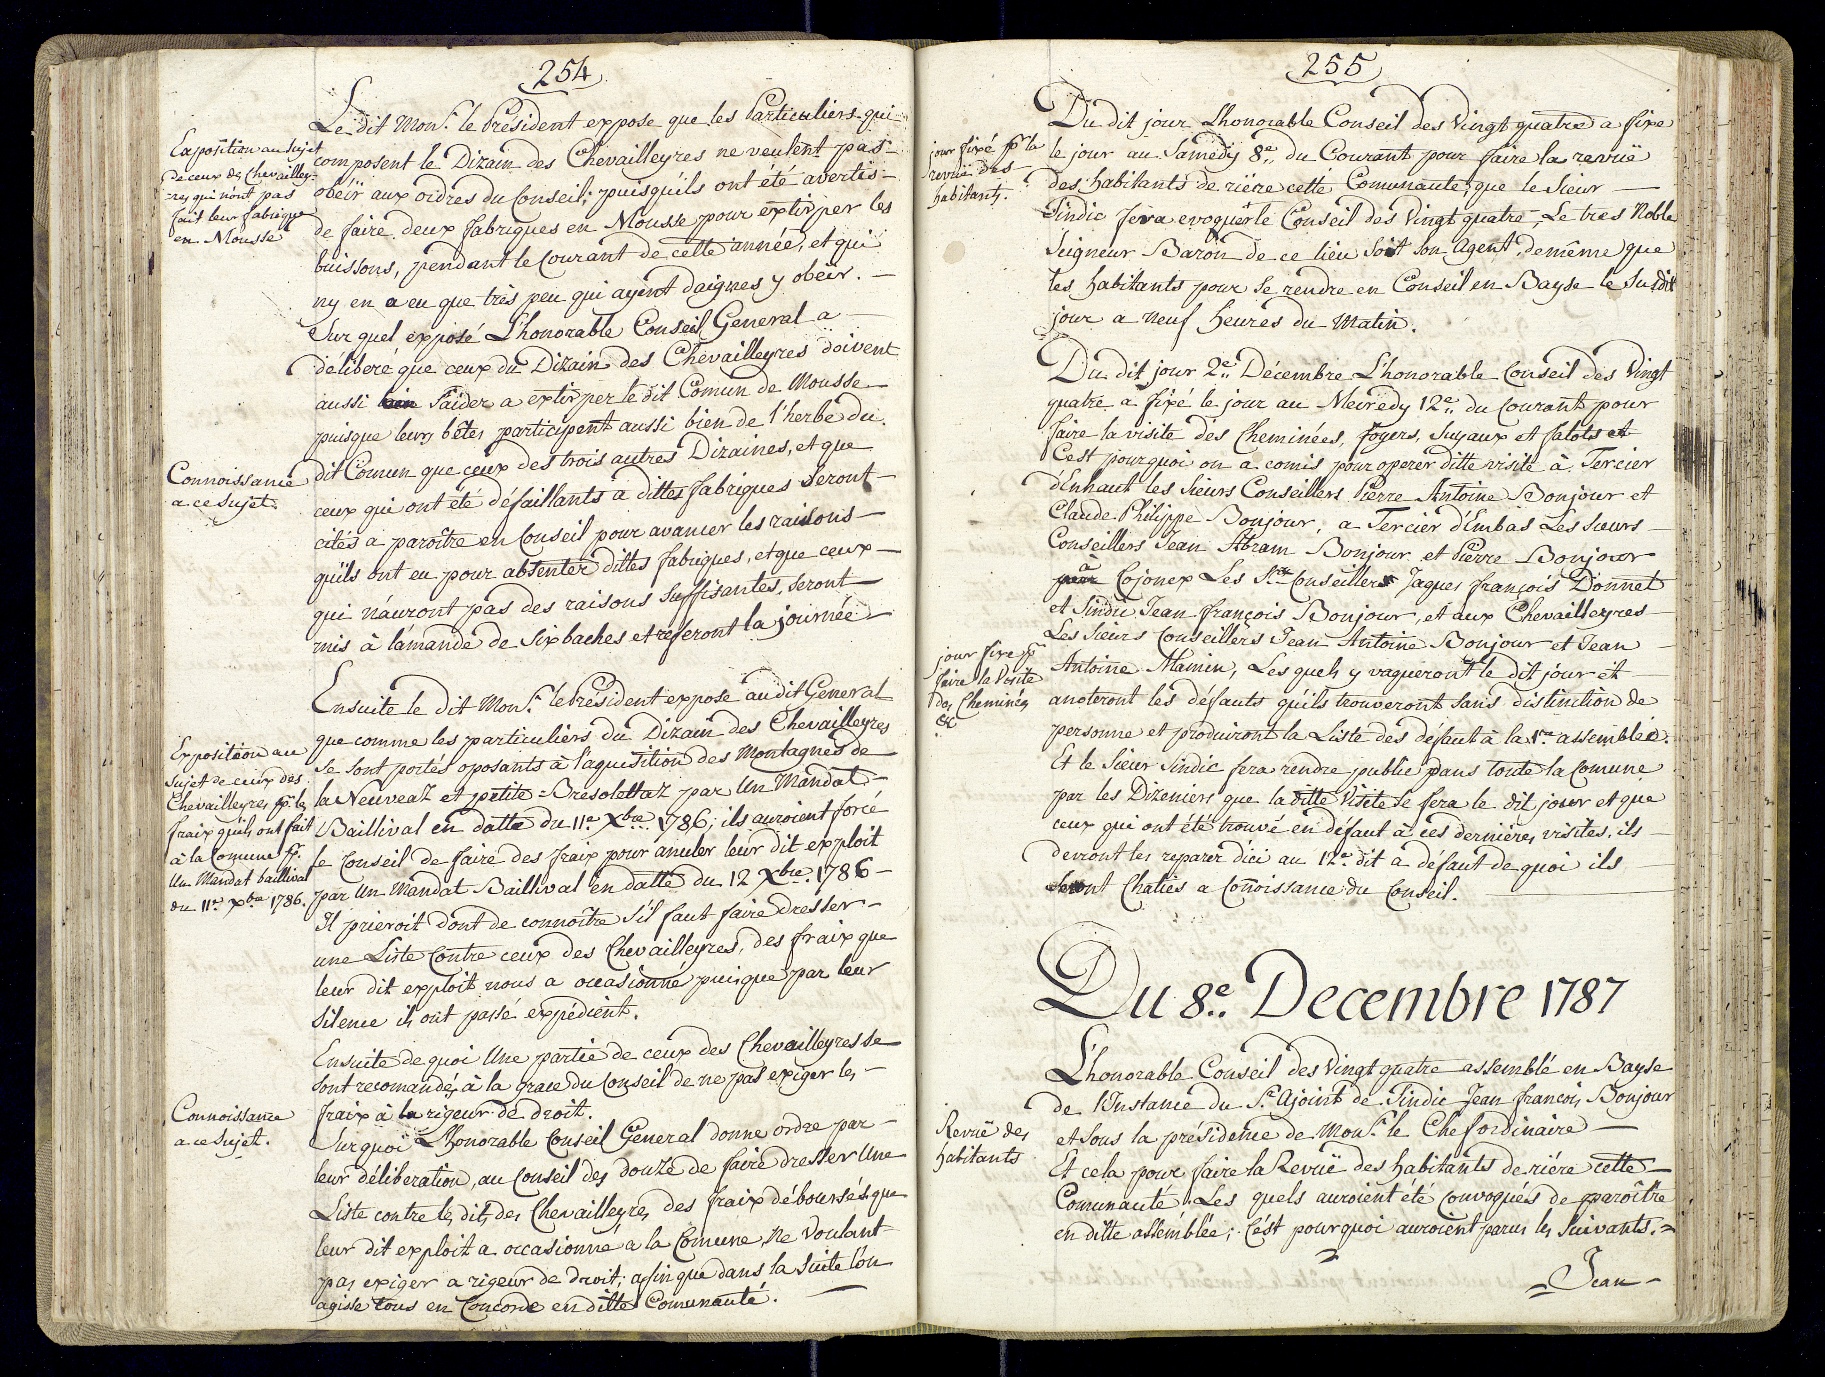 254
Le dit Mons.r le Président expose que les Particuliers qui
Exposition au Sujet
de ceux des Chevailley-
-res qui n'ont pas
fait leur fabrique
en Mousse
composent le Dizain des Chevailleyres ne veulent pas
obéïr aux ordres du Conseil; puisqu'ils ont été avertis
de faire deux fabriques en Mousse pour extirper les
buissons, pendant le Courant de cette année, et qui
ny en a eu que très peu qui ayent daignes y obéir. —
Sur quel exposé L'honorable Conseil General a —
deliberé que ceux du Dizain des Chevailleyres doivent
aussi S'aider a extirper le dit Comun de Mousse
puisque leurs bêtes participent aussi bien de l'herbe du
Connoissance
a ce Sujet.
dit Comun que ceux des trois autres Dizaines, et que
ceux qui ont été défaillants à dittes fabriques Seront —
cités a paroître en Conseil pour avancer les raisons —
qu'ils ont eu pour absenter dittes fabriques, et que ceux —
qui n'auront pas des raisons Suffisantes, Seront
mis à lamande de Six baches et referont la journée —
Ensuite le dit Mons.r le Président expose au dit General
que comme les particuliers du Dizain des Chevailleyres
Exposition au
Sujet de ceux des
Chevailleyres p.r les
fraix qu'ils ont fait
à la Comune p.r
Un Mandat baillival
du 11.e Xbre 1786.
se sont portés oposants à l'aquisition des Montagnes de
la Neuveaz et petite = Bresolettaz par Un Mandat —
Baillival en datte du 11.e Xbre 1786; ils auroient forcé
le Conseil de faire des fraix pour anuler leur dit exploit
par Un Mandat Baillival en datte du 12 Xbre. 1786 —
Il prieroit dont de connoître S'il faut faire dresser —
une Liste Contre ceux des Chevailleyres, des fraix que
leur dit exploit nous a occasionné puisque par leur
Silence ils ont passé expédient.
Ensuite de quoi Une partie de ceux des Chevailleyres se
Sont recomandés à la grace du Conseil de ne pas exiger les —
fraix à la rigeur de droit.
Connoissance
a ce Sujet.
Sur quoi L'honorable Conseil General donne ordre par —
leur déliberation, au Conseil des douze de faire dresser Une
Liste contre les dits des Chevailleyres des fraix déboursés que
leur dit exploit a occasionné a la Comune, ne Voulant
pas exiger a rigeur de droit; afin que dans la Suite l'on
agisse tous en Concorde en ditte Comunauté. —
255
Du dit jour L'honorable Conseil des Vingt quatre a fixe
jour fixé p.r la
revuë des
habitants.
le jour au Samedy 8.e du Courant pour faire la revuë
des habitants de rière cette Comunauté, que le Sieur —
Sindic fera evoquer le Conseil des Vingt quatre, Le tres Noble
Seigneur Baron de ce lieu Soit Son Agent, demême que
les habitants pour Se rendre en Conseil en Bayse le Susdit
jour a Neuf heures du Matin.
Du dit jour 2.e Décembre L'honorable Conseil des Vingt
quatre a fixé le jour au Mecredy 12.e du Courant pour
faire la visite des Cheminées, foyers, Suyaux et falots et
Cest pourquoi on a comis pour operer ditte visite à Tercier
d'Enhaut les Sieurs Conseillers Pierre Antoine Bonjour et
Claude Philippe Bonjour, a Tercier d'Embas Les Sieurs —
Conseillers Jean Abram Bonjour et Pierre Bonjour
à Cojonex Les S.rs Conseillers Jaques françois Donnet
et Sindic Jean françois Bonjour, et aux Chevailleyres —
Les Sieurs Conseillers Jean Antoine Bonjour et Jean —
jour fixe p.r
faire la Visite
des Cheminées
&c
Antoine Mamin, Les quels y vaqueront le dit jour et
anoteront les défauts qu'ils trouveront Sans distinction de
personne et produiront la Liste des défaut à la 1.re assemblée.
Et le Sieur Sindic fera rendre public dans toute la Comune
par les Dizeniers que la ditte Visite Se fera le dit jour et que
ceux qui ont été trouvé en défaut à ces dernières visites, ils —
devront les reparer dici au 12.e dit a défaut de quoi ils
Seront Chatiés a Connoissance du Conseil.
Du 8.e Decembre 1787
L'honorable Conseil des Vingt quatre assemblé en Bayse
de l'Instance du S.r Ajoint de Sindic Jean françois Bonjour
Revuë des
habitants
et Sous la présidence de Mons.r le Chef ordinaire —
Et cela pour faire la Revuë des habitants de rière cette —
Comunauté. Les quels auroient été Convoqués de paroître
en ditte assemblée; C'est pourquoi auroient parus les Suivants. =
= Jean —